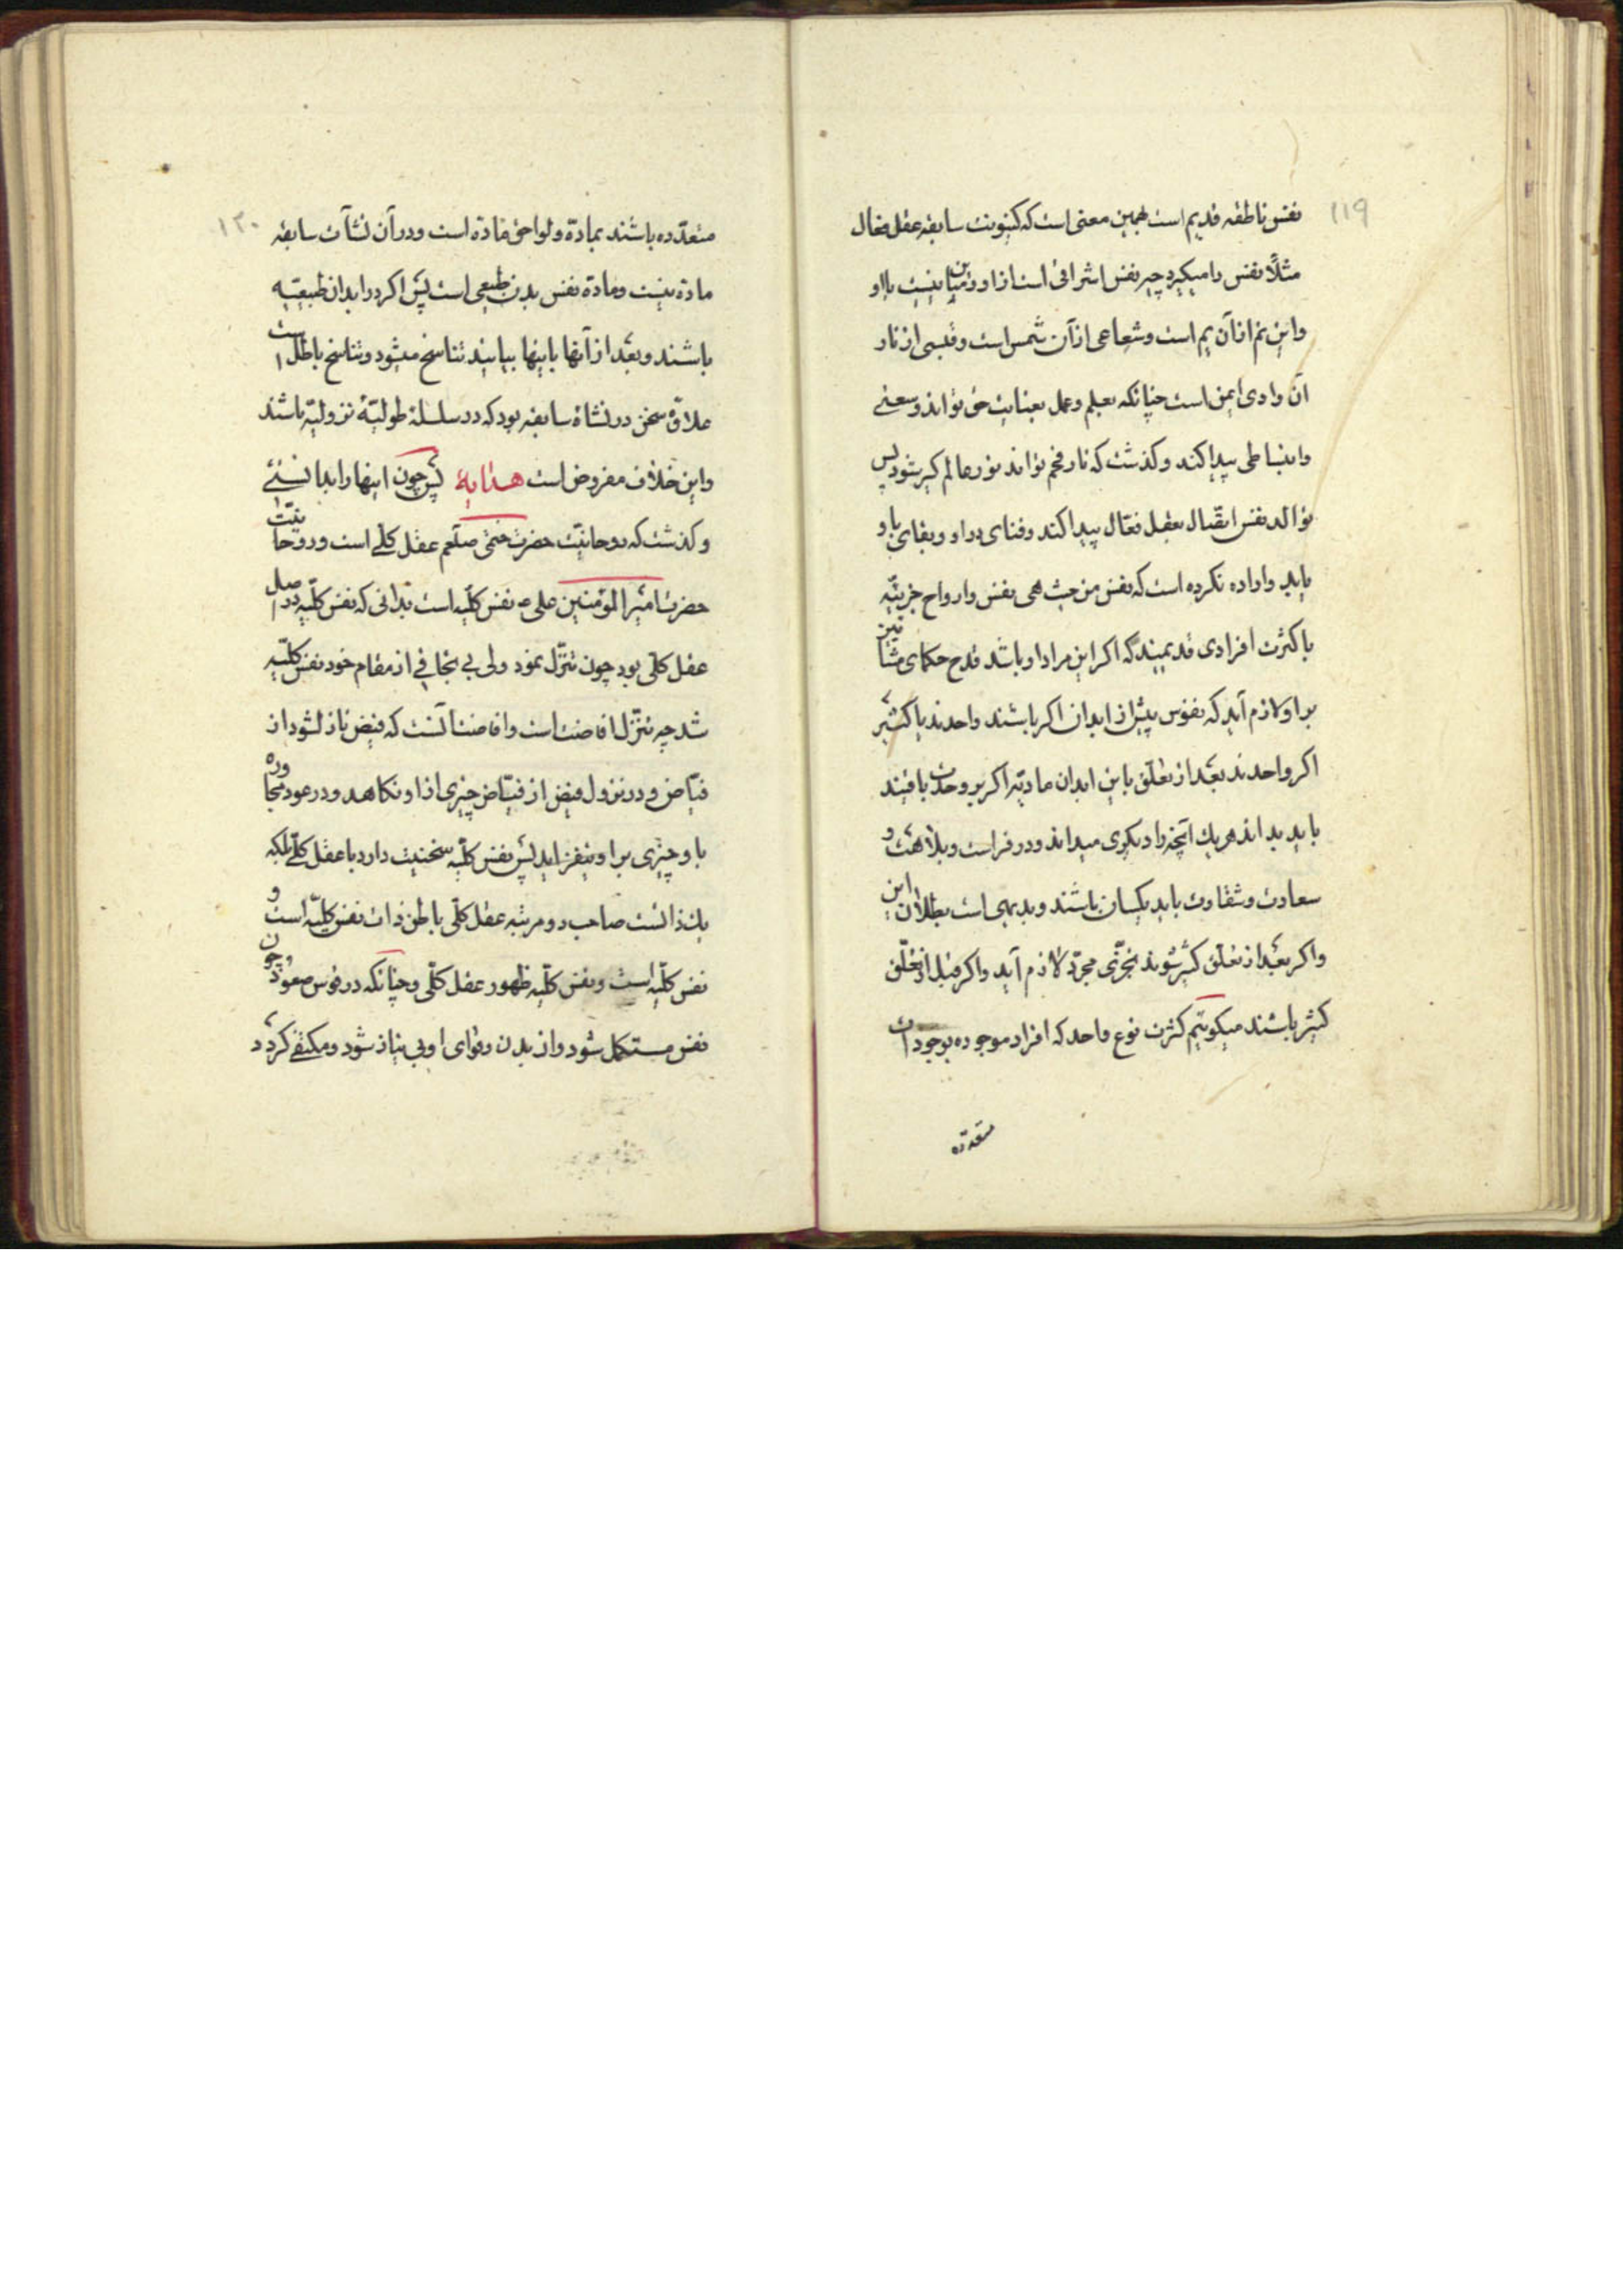 ۱۱۹
نفس ناطقه قدیم است بهمین معنی است که کینونت سابقه عقل فعال
مثلاً نفس را میگیرد چه نفس اشراقی است از او و مباین نیست با او
و این نم از آن یم است و شعاعی از آن شمس است و قبسی از نار
آن وادی ایمن است چنانکه بعلم و عمل بعنایت حق تواند وسعتی
و انبساطی پیدا کند و گذشت که نار فحم تواند نور عالم گیر شود پس
تواند نفس اتصال بعقل فعّال پیدا کند و فنای در او و بقای باو
یابد و اراده نکرده است که نفس من حیث هی نفس و ارواح جزئیّه
با کثرت افرادی قدیمند که اگر این مراد او باشد قدح حکمای مشائین
بر او لازم آید که نفوس پیش از ابدان اگر باشند واحدند یا کثیر
اگر واحدند بعد از تعلّق باین ابدان مادیّه اگر بر وحدت باقیند
باید بداند هر یک آنچه را دیگری میداند و در فراست و بلاهت و
سعادت و شقاوت باید یکسان باشند و بدیهی است بطلان این
و اگر بعد از تعلّق کثیر شوند تجزّی مجرّد لازم آید و اگر قبل از تعلّق
کثیر باشند میگوئیم کثرت نوع واحد که افراد موجوده بوجودات
متعدّده
۱۲۰
متعدّده باشند بمادّة و لواحق مادّة است و در آن نشآت سابقه
مادّة نیست و مادّة نفس بدن طبیعی است پس اگر در ابدان طبیعیّه
باشند و بعد از آنها باینها بیایند تناسخ میشود و تناسخ باطل است
علاوّه سخن در نشاة سابقه بود که در سلسلهٔ طولیّهٔ نزولیّه باشند
و این خلاف مفروض است هدایة پس چون اینها را بدانستی
و گذشت که روحانیّت حضرت ختمی صلعم عقل کلّی است و روحانیّت
حضرت امیر المؤمنین علی ع نفس کلّیه است بدانی که نفس کلّیه در اصل
عقل کلّی بود چون تنزّل نمود ولی بی تجافی از مقام خود نفس کلّیّه
شد چه تنزّل افاضت است و افاضت آنست که فیض نازل شود از
فیّاض و در نزول فیض از فیّاض چیزی از او نکاهد و در عود مجاوره
باو چیزی بر او نیفزاید پس نفس کلّیّه سنخیت دارد با عقل کلّی بلکه
یک ذاتست صاحب دو مرتبه عقل کلّی باطن ذات نفس کلّیّه است و
نفس کلّیه است و نفس کلّیه ظهور عقل کلّی و چنانکه در قوس صعود چون
نفس مستکمل شود و از بدن و قوای او بی نیاز شود و مکتفی گردد